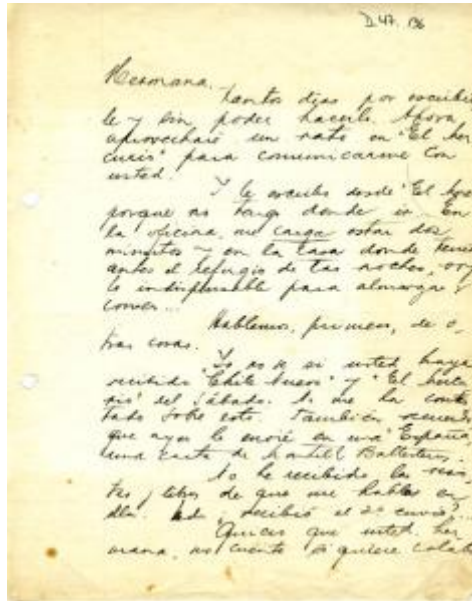 D 47. 136
Hermana.
Tantos días por escribir
le y sin poder hacerlo. Ahora
aprovecharé un rato en "El Mer
curio" para comunicarme con
usted.
Y le escribo desde "El
porque no tengo donde ir. En
la oficina, me carga estar dos
minutos y en la casa donde
antes el refugio de las noches, voy
lo indispensable para almorzar y
comer...
Hablemos, primero, de o_
tras cosas.
Yo no sé si usted haya
recibido "Chile Nuevo" y "El
del Sábado. No me ha contes
tado sobre esto. También
que ayer le envié en una "España"
una carta de Montiel Ballesteros.
No he recibido las
y libros de que me habla en
ella. Ud. recibió el 2º envío?
Quiero que usted, her
mana, me cuente si quiere